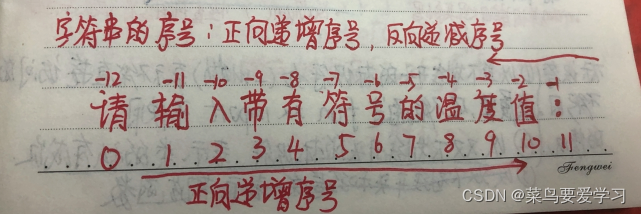 字符串的序号:正向递增序号,反向递减序号
-12 -11 -10 -9 -8 -7 -6 -5 -4 -3 -2 -1
请输入带有符号的温度值:
0 1 2 3 4 5 6 7 8 9 10 11
Fengwei
正向递增序号
CSDN @菜鸟要爱学习